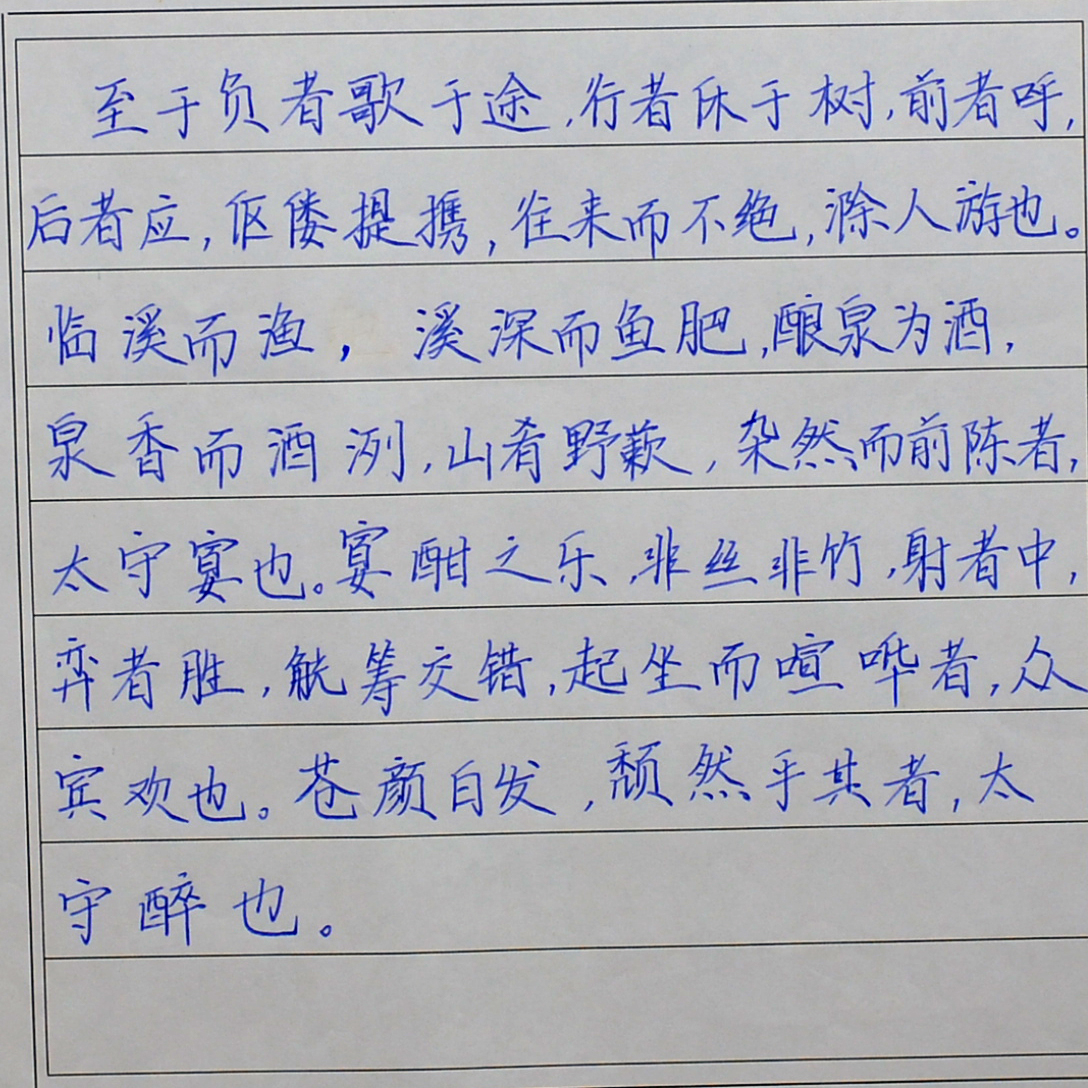 至于负者歌于途,行者休于树,前者呼,
后者应,伛偻提携,往来而不绝,滁人游也。
临溪而渔,溪深而鱼肥,酿泉为酒,
泉香而酒洌,山肴野蔌,杂然而前陈者,
太守宴也。宴酣之乐,非丝非竹,射者中,
弈者胜,觥筹交错,起坐而喧哗者,众
宾欢也。苍颜白发,颓然乎其者,太
守醉也。